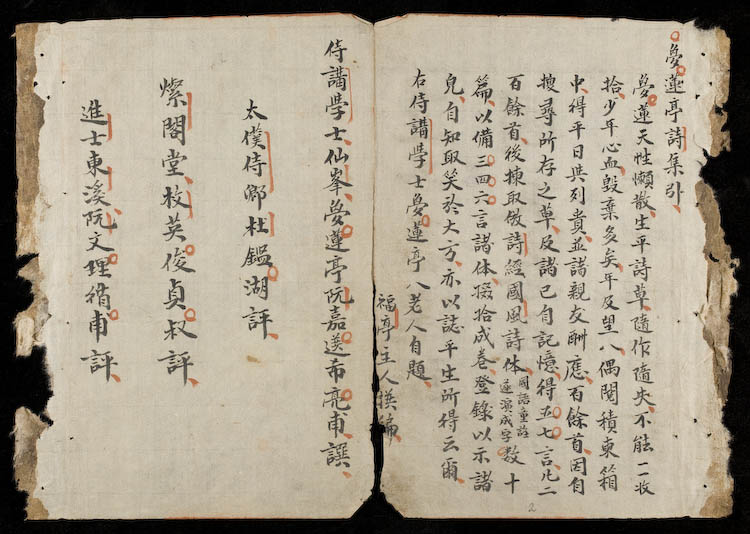 夢蓮亭詩集引
夢蓮天性懶散生平詩草隨作隨失不能一一收
拾少年心血毀棄多矣年及望八偶閱積東箱
中得平日與列貴並諸親友酬應百餘首因自
搜尋所存之草及諸已自記憶得五七言凡二
百餘首後揀取倣詩經國風詩体國語重註逐演成字数十
篇以備三四六言諸体掇拾成卷登錄以示諸
兒自知取笑於大方亦以誌平生所得云爾
右侍講學士夢蓮亭八老人自題
福亭主人撰編
侍講學士仙峯夢蓮亭阮嘉送布亮甫譔
太僕侍卿杜鑑湖評
燦閣堂枚英俊貞叔評
進士東溪阮文理循甫評
2